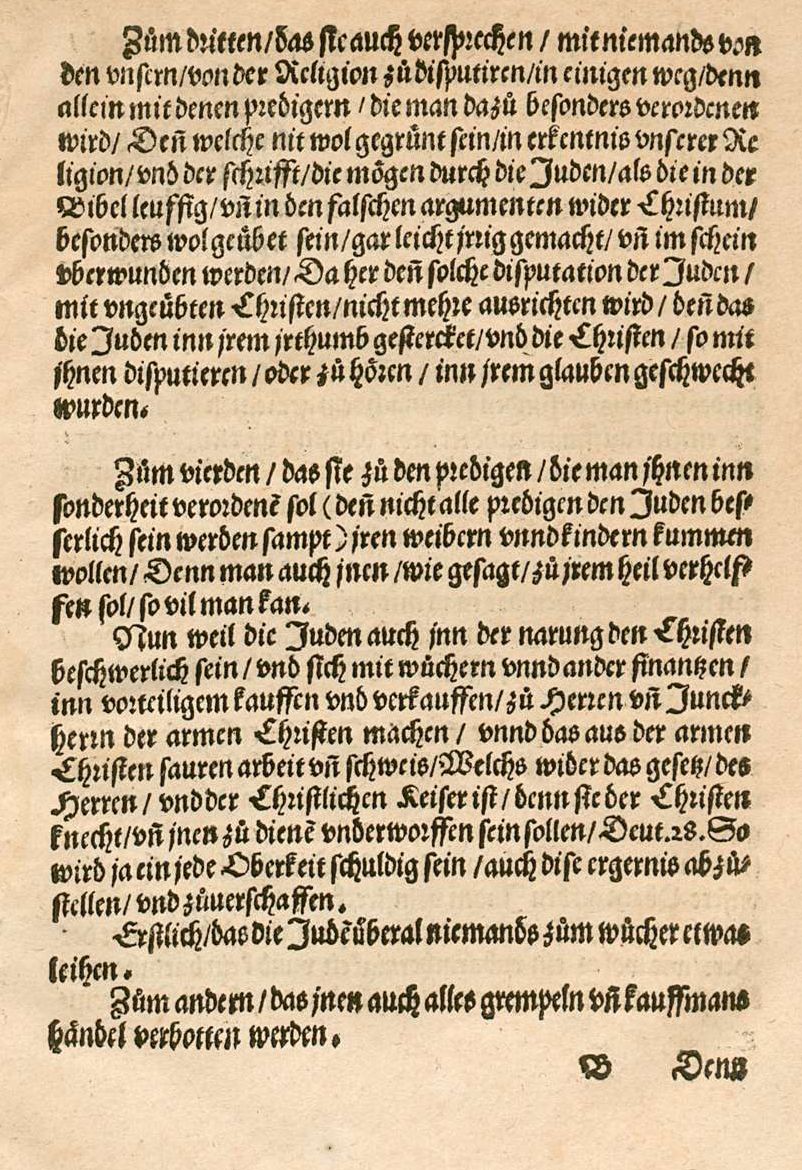 Zům dritten/das sie auch versprechen / mit niemands von
den vnsern/von der Religion zů disputiren/in einigen weg/denn
allein mit denen predigern / die man dazů besonders verordenen
wird/ Deñ welche nit wol gegrünt sein/in erkentnis vnserer Re
ligion/vnd der schrifft/die mögen durch die Juden/als die in der
Bibel leuffig/vñ in den falschen argumenten wider Christum/
besonders wol geübet sein/gar leicht jrrig gemacht/ vñ im schein
vberwunden werden/ Da her deñ solche disputation der Juden /
mit vngeübten Christen/nicht mehre ausrichten wird / deñ das
die Juden inn jrem jrthumb gestercket/vnd die Christen / so mit
jhnen disputieren / oder zů hören / inn jrem glauben geschwecht
wurden.
Zům vierden / das sie zů den predigen / die man jhnen inn
sonderheit verordenẽ sol (deñ nicht alle predigen den Juden bes⸗
serlich sein werden sampt) jren weibern vnnd kindern kummen
wollen/ Denn man auch jnen /wie gesagt/zů jrem heil verhelf⸗
fen sol/ so vil man kan.
Nun weil die Juden auch jnn der narung den Christen
beschwerlich sein / vnd sich mit wůchern vnnd ander finantzen /
inn vorteiligem kauffen vnd verkauffen/zů Herren vñ Junck⸗
herrn der armen Christen machen / vnnd das aus der armen
Christen sauren arbeit vñ schweis/Welchs wider das gesetz/des
Herren / vnd der Christlichen Keiser ist / denn sie der Christen
knecht/vñ jnen zů dienẽ vnderworffen sein sollen/ Deut.28. So
wird ja ein jede Oberkeit schuldig sein /auch dise ergernis abzů⸗
stellen/ vnd zůuerschaffen.
Erstlich/das die Judẽ überal niemands zům wůcher etwas
leihen.
Zům andern / das jnen auch alles grempeln vñ kauffmans
händel verbotten werden.
B Denn